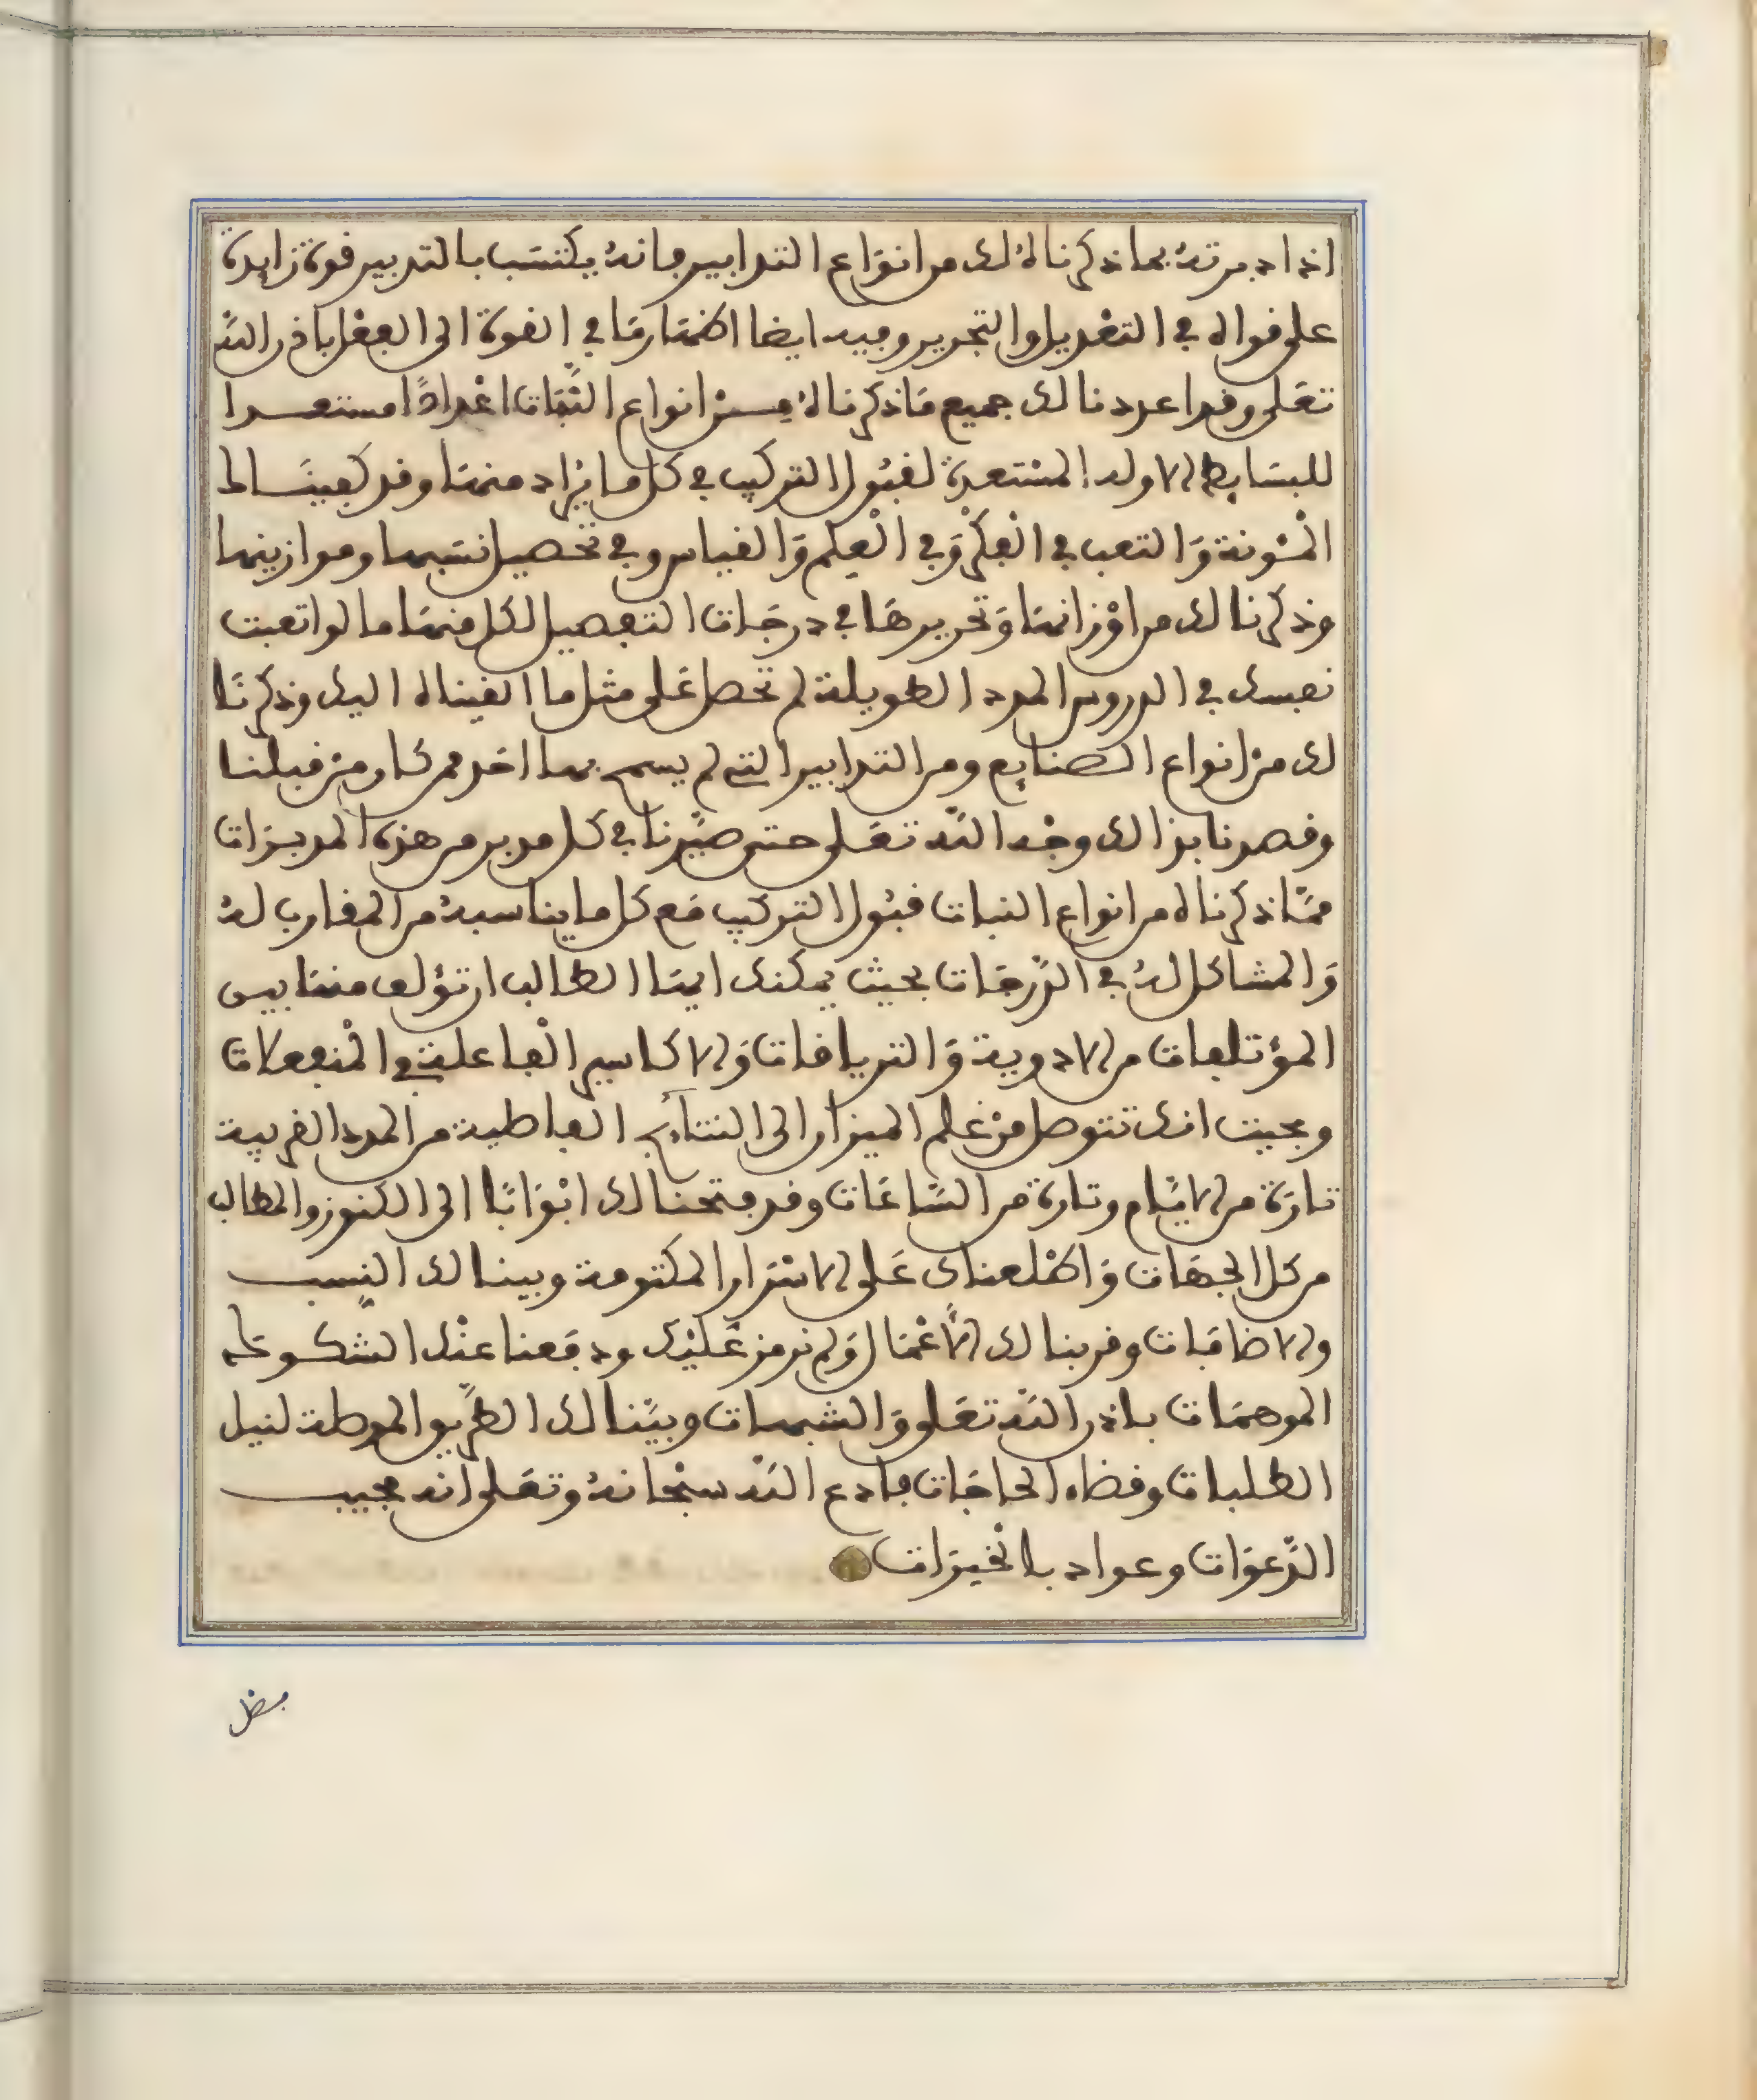 اذا دبرته بما ذكرناه لك من انواع التدابير فانه يكتسب بالتدبير قوة زايدة
على قواه في التعديل والتجرير وفيه ايضا اظهار ما في القوة الى الفعل باذن الله
تعلى وقد اعددنا لك جميع ما ذكرناه من انواع النبات اعدادا مستعدا
للبسايط الاوله المستعدة لقبول التركيب في كل ما يراد منها وقد كفيناك
المئونة والتعب في الفكر وفي العلم والقياس وفي تحصيل نسبها وموازينها
وذكرنا لك من اوزانها وتحريرها في درجات التفصيل لكل منها ما لو اتعبت
نفسك في الدروس المدد الطويلة لم تحصل على مثل ما القيناه اليك وذكرنا
لك من انواع الصنايع ومن التدابير التي لم يسمح بها احد ممن كان من قبلنا
وقصدنا بذالك وجه الله تعلى حتى صيرنا في كل مدبر من هذه المدبرات
مما ذكرناه من انواع النبات قبول التركيب مع كل ما يناسبه من المقارب له
والمشاكل له في الدرجات بحيث يمكنك ايها الطالب ان تؤلف منها بين
المؤتلفات من الادوية والترياقات والاكاسير الفاعلة في المنفعلات
وبحيث انك تتوصل من علم الميزان الى النتايج الفاطية من المدد القريبة
تارة من الايام وتارة من الساعات وقد فتحنا لك ابوابا الى الكنوز والمطالب
من كل الجهات واطلعناك على الاسرار المكتومة وبينا لك النسب
والاضافات وقربنا لك الاعمال ولم نرمز عليك ودفعنا عنك الشكوك
الموهمات باذن الله تعلى والشبهات وبينا لك الطريق الموطئة لنيل
الطلبات وقضاء الحاجات فادع الله سبحانه وتعلى انه مجيب
الدعوات وعواد بالخيرات
فصل